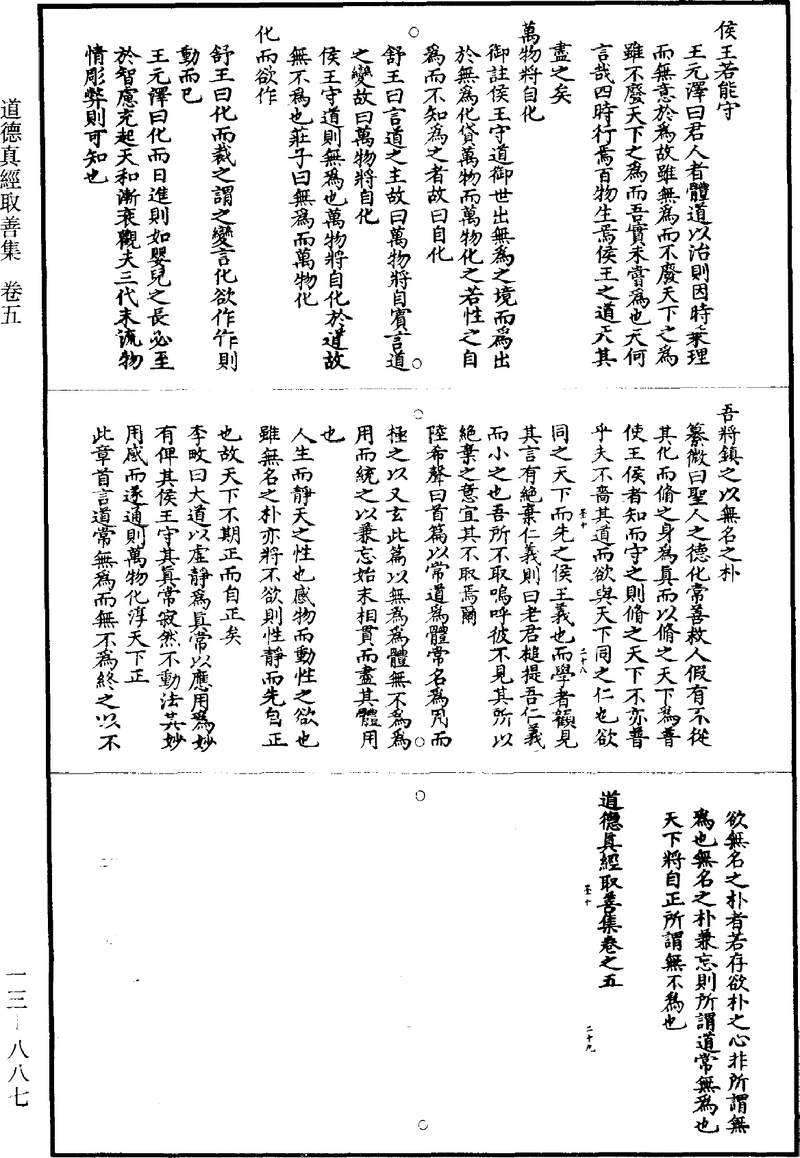 道德真經取善集　卷五
侯王若能守
王元澤曰君人者體道以治則因時乗理
而無意於為故雖無為而不廢天下之為
雖不廢天下之為而吾實未嘗為也天何
言哉四時行焉百物生焉侯王之道天其
盡之矣
萬物將自化
御註侯王守道御世出無為之境而為出
於無為化貸萬物而萬物化之若性之自
為而不知為之者故曰自化
舒王曰言道之主故曰萬物將自賓言道
之變故曰萬物將自化
侯王守道則無為也萬物將自化於道故
無不為也莊子曰無為而萬物化
化而欲作
舒王曰化而裁之謂之變言化欲作作則
動而已
王元澤曰化而日進則如嬰兒之長必至
於智慮充起天和漸衰觀夫三代末流物
情彫弊則可知也
吾將鎮之以無名之朴
纂微曰聖人之德化常善救人假有不從
其化而脩之身為真而以脩之天下為普
使王侯者知而守之則脩之天下不亦普
乎夫不嗇其道而欲與天下同之仁也欲
同之天下而先之侯王義也而學者顧見
其言有絕棄仁義則曰老君槌提吾仁義
而小之也吾所不取嗚呼彼不見其所以
絕棄之意宜其不取焉爾
陸希聲曰首篇以常道為體常名為用而
極之以又玄此篇以無為為體無不為為
用而統之以兼忘始末相貫而盡其體用
也
人生而靜天之性也感物而動性之欲也
雖無名之朴亦將不欲則性靜而先自正
也故天下不期正而自正矣
李畋曰大道以虛靜為真常以應用為妙
有俾其侯王守其真常寂然不動法其妙
用感而遂通則萬物化淳天下正
此章首言道常無為而無不為終之以不
欲無名之朴者若存欲朴之心非所謂無
為也無名之朴兼忘則所謂道常無為也
天下將自正所謂無不為也
道德真經取善集卷之五
二十八
二十九
一三－八八七